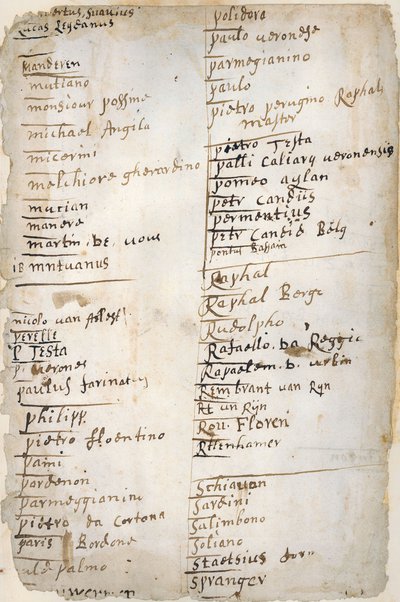 Lambertus, Suavius
Lucas Leydanus
manderen
mutiano
monsiour possme
michael Angila
micerini
melchiore gherardino
mucian
manere
martin, de, vous
mntuanus
nicolo van Allest
perelle
P Testa
p verones
paulus farinatus
philipp
pietro floentino
pami
pardenon
parmeggianini
pietro da Cortona
paris Bordone
palmo
polidora
paulo veronese
parmegianino
paulo
pietro perugino Raphals
master
pietro Testa
palli Caliary veronensis
pomeo aylan
petr Candiis
permentius
petr Candid Belg
pontus Bassain
Raphal
Raphal Berge
Rudolpho
Rafaello da Reggie
Rapaelem d. urbin
Rembrant van Ryn
Re un Rijn
Rou. Floren
Rttenhamer
Schiavon
Sardini
Salimbono
Soliano
Staetsius
Spranger